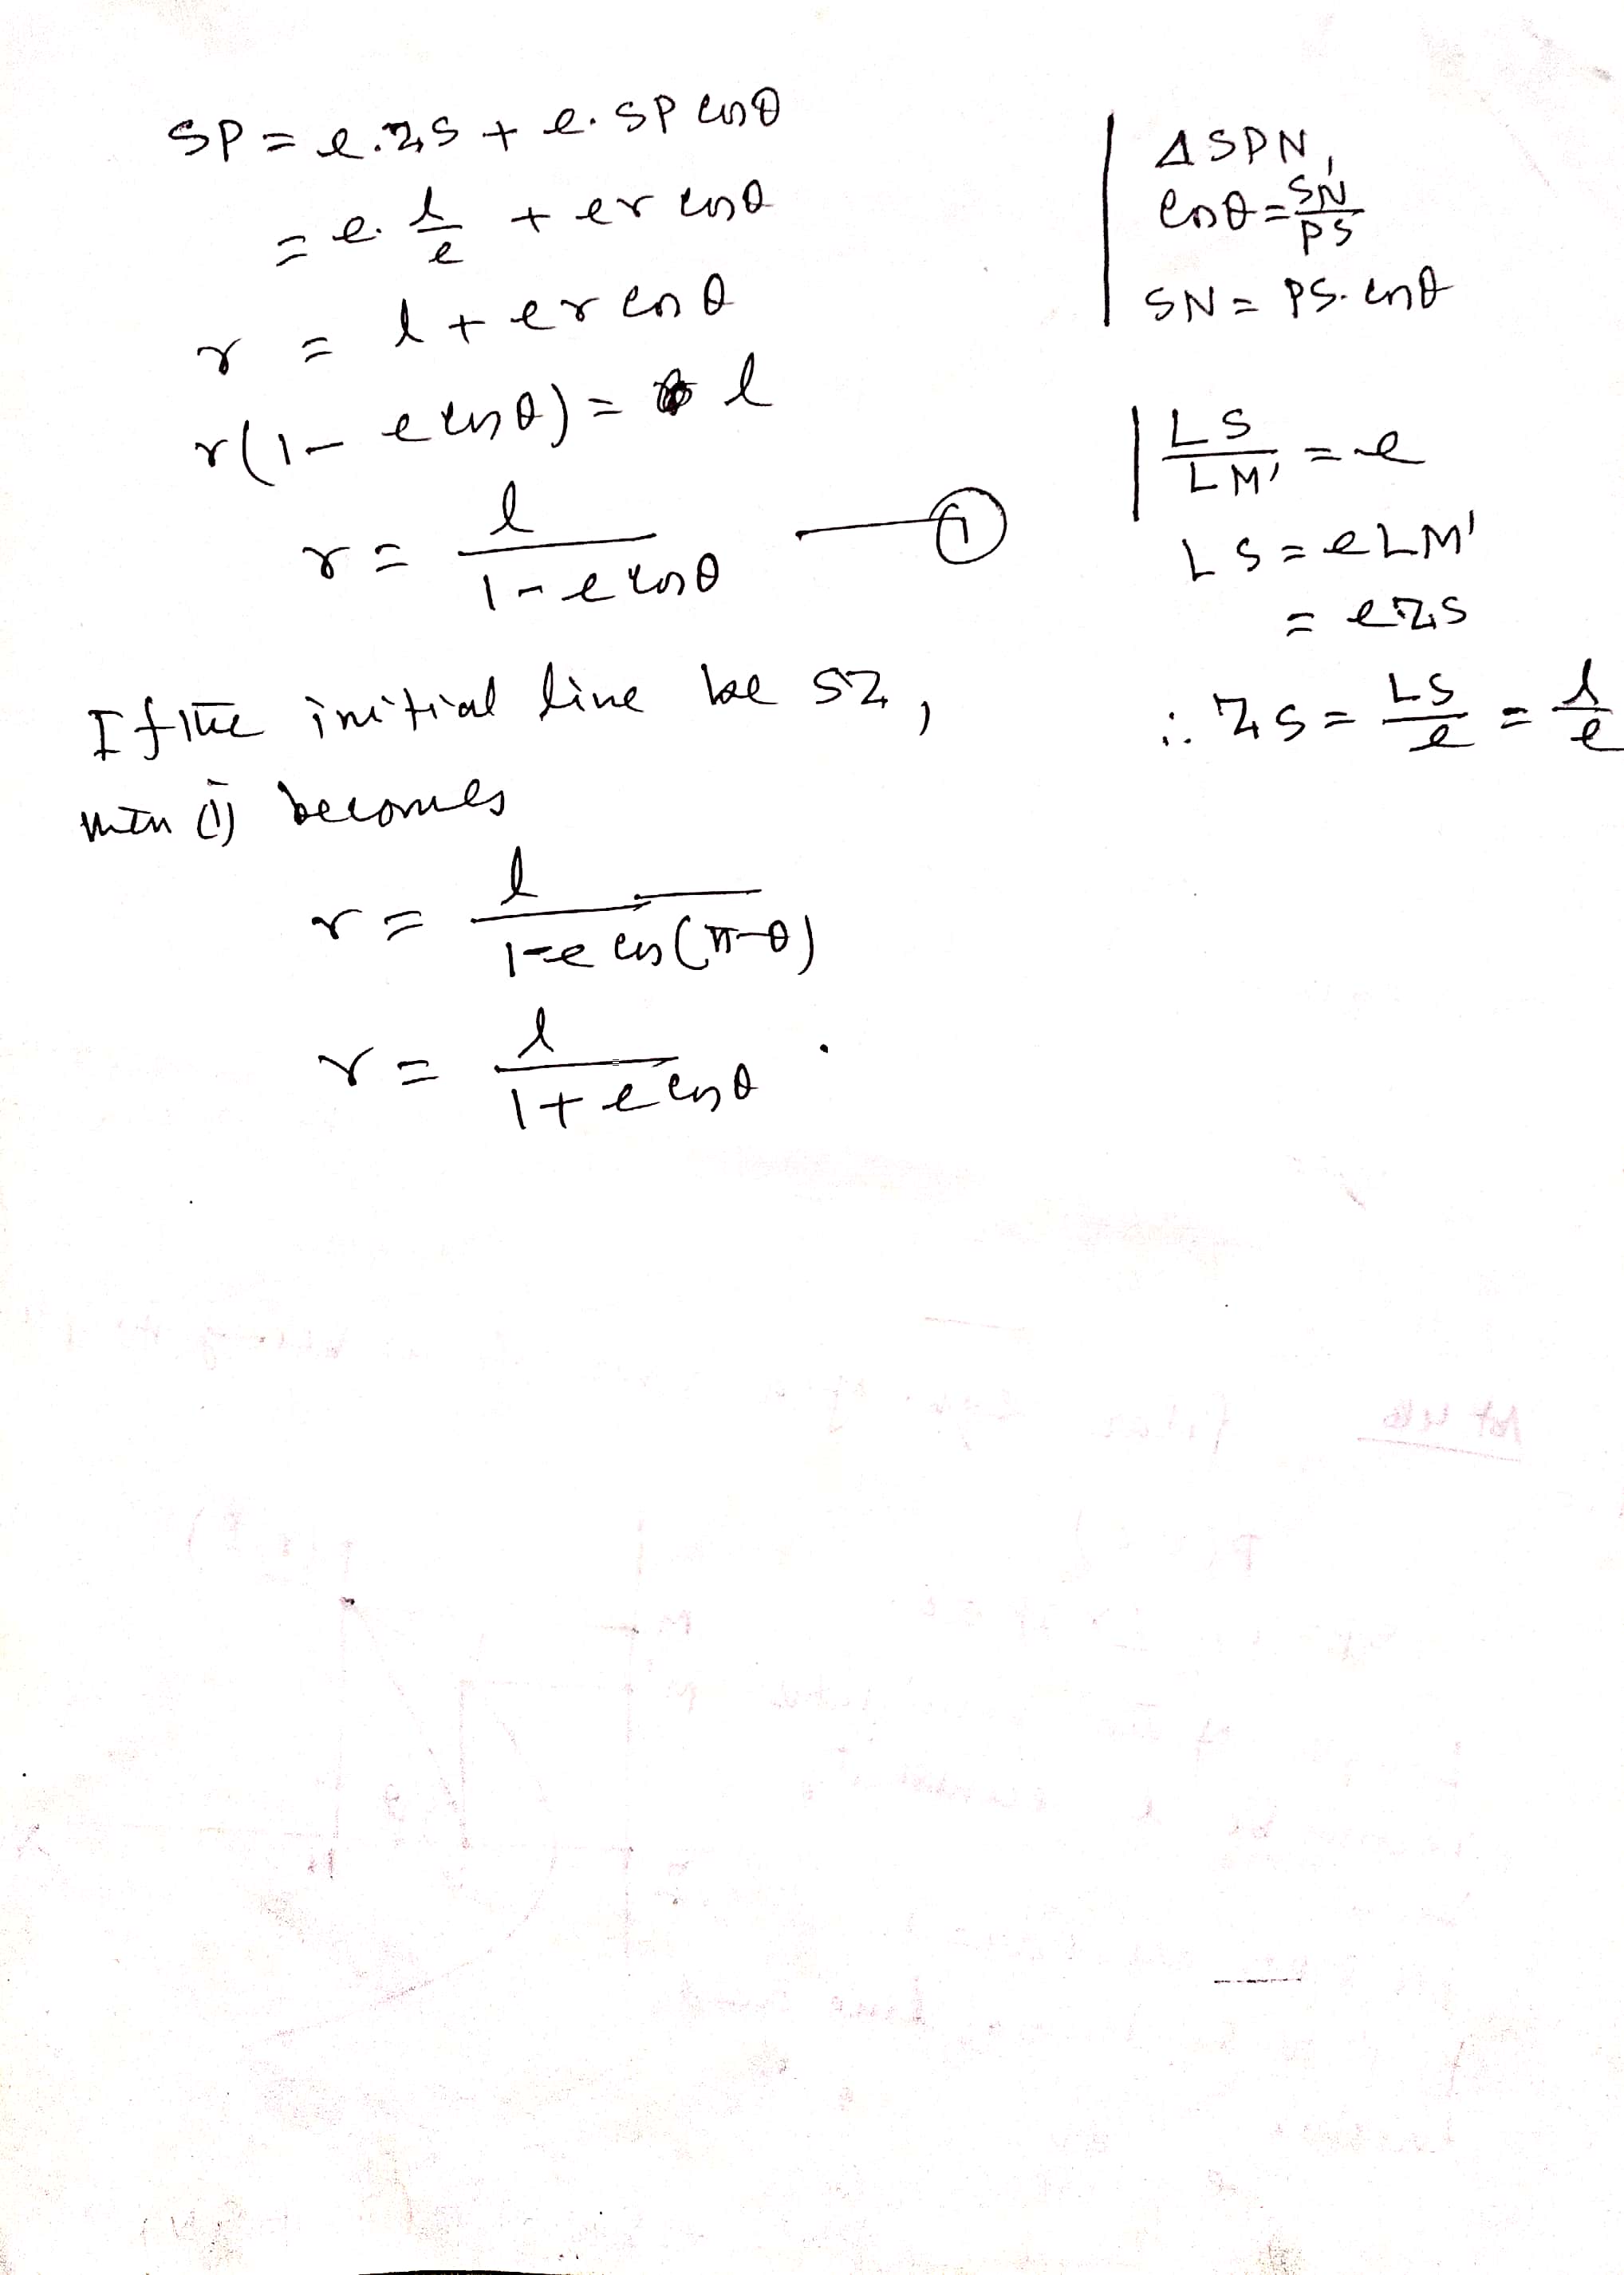 SP = e.ZS + e.SP cosθ
= e. l/e + er cosθ
r = l + er cosθ
r(1 - e cosθ) = l
r = l/(1 - e cosθ) — (1)
If the initial line be SZ,
then (1) becomes
r = l/(1 - e cos(π-θ))
r = l/(1 + e cosθ) .
Δ SPN,
cosθ = SN/PS
SN = PS. cosθ
LS/LM' = e
LS = eLM'
= eZS
∴ ZS = LS/e = l/e